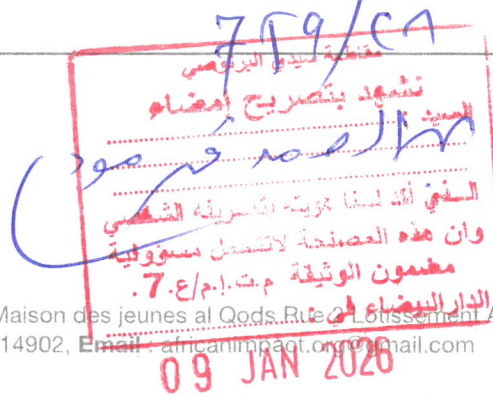 719/
مقاطعة سيدي البرنوصي
نشهد بتصريح إمضاء
السيد
الصمد
الـذي أكد لسنا هويته بتصريفه الشخصي
وان هذه المصلحة لاتتحمل مسؤولية
مضمون الوثيقة م.ت.إ.م/ع.7.
الدار البيضاء في
Maison des jeunes al Qods Rue 2 Lotissement A
14902, Email : africanimpact.org@gmail.com
09 JAN 2026